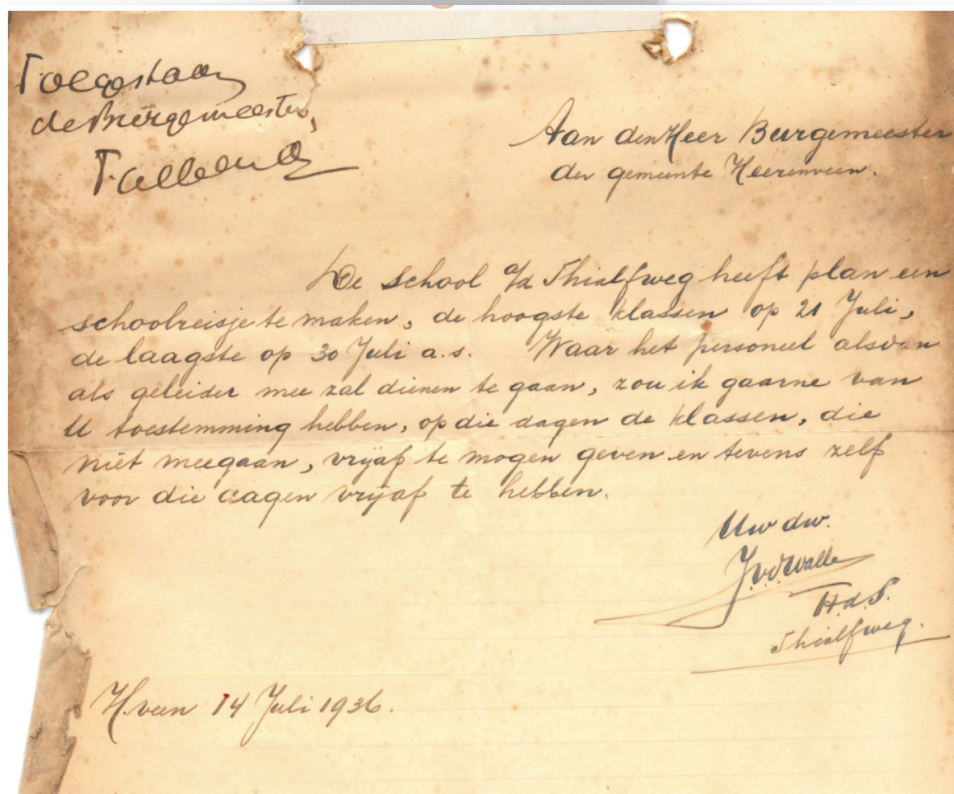 Toegestaan
de Burgemeester,
Aan den Heer Burgemeester
der gemeente Heerenveen.
De school a/d Thialfweg heeft plan een
schoolreisje te maken, de hoogste klassen op 21 Juli,
de laagste op 30 Juli a.s. Waar het personeel alsdan
als geleider mee zal dienen te gaan, zou ik gaarne van
U toestemming hebben, op die dagen de klassen, die
niet meegaan, vrijaf te mogen geven en tevens zelf
voor die dagen vrijaf te hebben.
Uw dw.
J.v.d.Walle
H.d.S.
Thialfweg.
H.veen 14 Juli 1936.